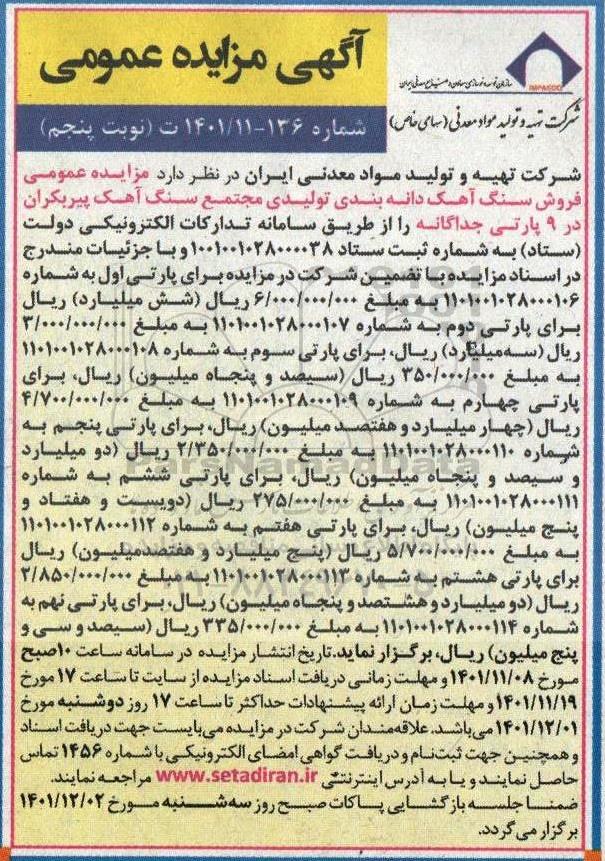 آگهی مزایده عمومی
IMPASCO
سازمان توسعه و نوسازی معادن و صنایع معدنی ایران
شرکت تهیه و تولید مواد معدنی (سهامی خاص)
شماره ۱۳۶-۱۴۰۱/۱۱ ت (نوبت پنجم)
شرکت تهیه و تولید مواد معدنی ایران در نظر دارد مزایده عمومی
فروش سنگ آهک دانه بندی تولیدی مجتمع سنگ آهک پیربکران
در ۹ پارتی جداگانه را از طریق سامانه تدارکات الکترونیکی دولت
(ستاد) به شماره ثبت ستاد ۱۰۰۱۰۰۱۰۲۸۰۰۰۰۳۸ و با جزئیات مندرج
در اسناد مزایده با تضمین شرکت در مزایده برای پارتی اول به شماره
۱۱۰۱۰۰۱۰۲۸۰۰۰۱۰۶ به مبلغ ۶/۰۰۰/۰۰۰/۰۰۰ ریال (شش میلیارد) ریال
برای پارتی دوم به شماره ۱۱۰۱۰۰۱۰۲۸۰۰۰۱۰۷ به مبلغ ۳/۰۰۰/۰۰۰/۰۰۰
ریال (سه میلیارد) ریال، برای پارتی سوم به شماره ۱۱۰۱۰۰۱۰۲۸۰۰۰۱۰۸
به مبلغ ۳۵۰/۰۰۰/۰۰۰ ریال (سیصد و پنجاه میلیون) ریال، برای
پارتی چهارم به شماره ۱۱۰۱۰۰۱۰۲۸۰۰۰۱۰۹ به مبلغ ۴/۷۰۰/۰۰۰/۰۰۰
ریال (چهار میلیارد و هفتصد میلیون) ریال، برای پارتی پنجم به
شماره ۱۱۰۱۰۰۱۰۲۸۰۰۰۱۱۰ به مبلغ ۲/۳۵۰/۰۰۰/۰۰۰ ریال (دو میلیارد
و سیصد و پنجاه میلیون) ریال، برای پارتی ششم به شماره
۱۱۰۱۰۰۱۰۲۸۰۰۰۱۱۱ به مبلغ ۲۷۵/۰۰۰/۰۰۰ ریال (دویست و هفتاد و
پنج میلیون) ریال، برای پارتی هفتم به شماره ۱۱۰۱۰۰۱۰۲۸۰۰۰۱۱۲
به مبلغ ۵/۷۰۰/۰۰۰/۰۰۰ ریال (پنج میلیارد و هفتصدمیلیون) ریال
برای پارتی هشتم به شماره ۱۱۰۱۰۰۱۰۲۸۰۰۰۱۱۳ به مبلغ ۲/۸۵۰/۰۰۰/۰۰۰
ریال (دو میلیارد و هشتصد و پنجاه میلیون) ریال، برای پارتی نهم به
شماره ۱۱۰۱۰۰۱۰۲۸۰۰۰۱۱۴ به مبلغ ۳۳۵/۰۰۰/۰۰۰ ریال (سیصد و سی و
پنج میلیون) ریال، برگزار نماید. تاریخ انتشار مزایده در سامانه ساعت ۱۰صبح
مورخ ۱۴۰۱/۱۱/۰۸ و مهلت زمانی دریافت اسناد مزایده از سایت تا ساعت ۱۷ مورخ
۱۴۰۱/۱۱/۱۹ و مهلت زمان ارائه پیشنهادات حداکثر تا ساعت ۱۷ روز دوشنبه مورخ
۱۴۰۱/۱۲/۰۱ می‌باشد. علاقه‌مندان شرکت در مزایده می‌بایست جهت دریافت اسناد
و همچنین جهت ثبت‌نام و دریافت گواهی امضای الکترونیکی با شماره ۱۴۵۶ تماس
حاصل نمایند و یا به آدرس اینترنتی www.setadiran.ir مراجعه نمایند.
ضمنا جلسه بازگشایی پاکات صبح روز سه‌شنبه مورخ ۱۴۰۱/۱۲/۰۲
برگزار می گردد.
ParsNamadData